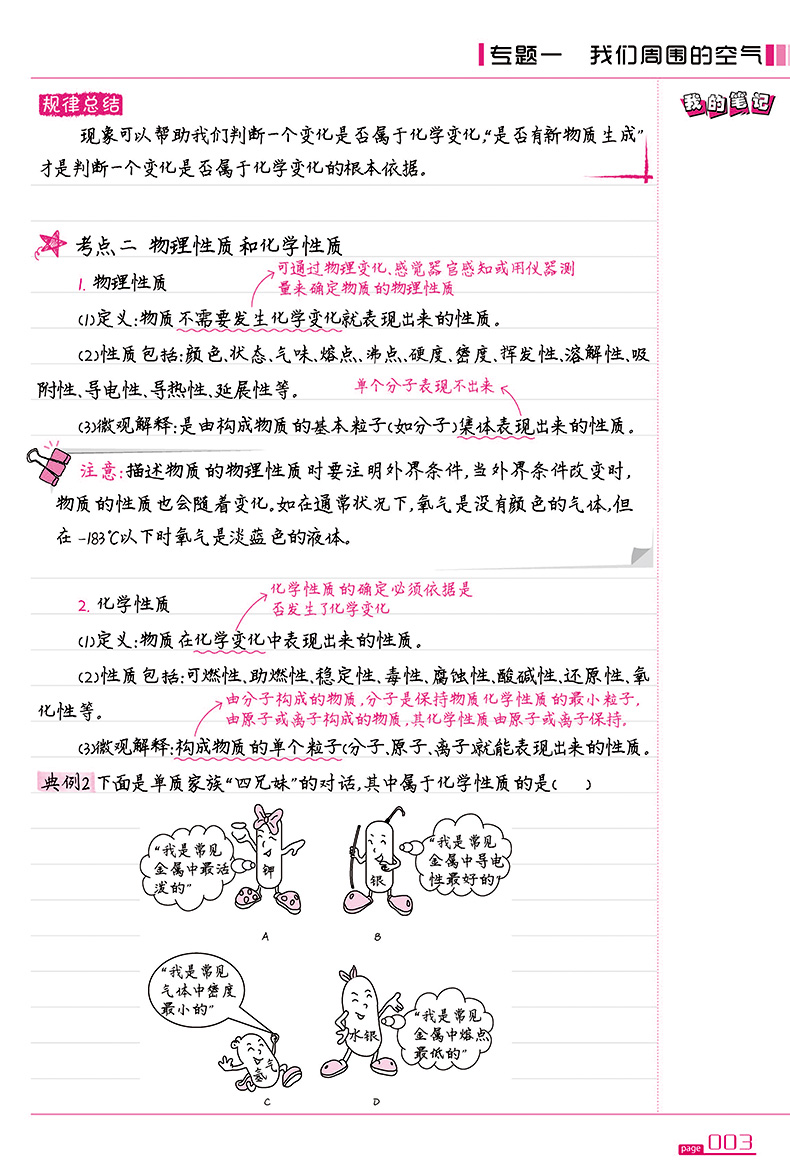 专题一 我们周围的空气
规律总结
我的笔记
现象可以帮助我们判断一个变化是否属于化学变化,“是否有新物质生成”
才是判断一个变化是否属于化学变化的根本依据。
考点二 物理性质和化学性质
可通过物理变化、感觉器官感知或用仪器测
量来确定物质的物理性质
1. 物理性质
(1)定义:物质不需要发生化学变化就表现出来的性质。
(2)性质包括:颜色、状态、气味、熔点、沸点、硬度、密度、挥发性、溶解性、吸
附性、导电性、导热性、延展性等。
单个分子表现不出来
(3)微观解释:是由构成物质的基本粒子(如分子)集体表现出来的性质。
注意:描述物质的物理性质时要注明外界条件,当外界条件改变时,
物质的性质也会随着变化。如在通常状况下,氧气是没有颜色的气体,但
在-183℃以下时氧气是淡蓝色的液体。
化学性质的确定必须依据是
否发生了化学变化
2. 化学性质
(1)定义:物质在化学变化中表现出来的性质。
(2)性质包括:可燃性、助燃性、稳定性、毒性、腐蚀性、酸碱性、还原性、氧
化性等。
由分子构成的物质,分子是保持物质化学性质的最小粒子,
由原子或离子构成的物质,其化学性质由原子或离子保持。
(3)微观解释:构成物质的单个粒子(分子、原子、离子)就能表现出来的性质。
典例2 下面是单质家族“四兄妹”的对话,其中属于化学性质的是( )
“我是常见
金属中最活
泼的”
钾
A
银
“我是常见
金属中导电
性最好的”
B
“我是常见
气体中密度
最小的”
氢气
C
水银
“我是常见
金属中熔点
最低的”
D
page 003